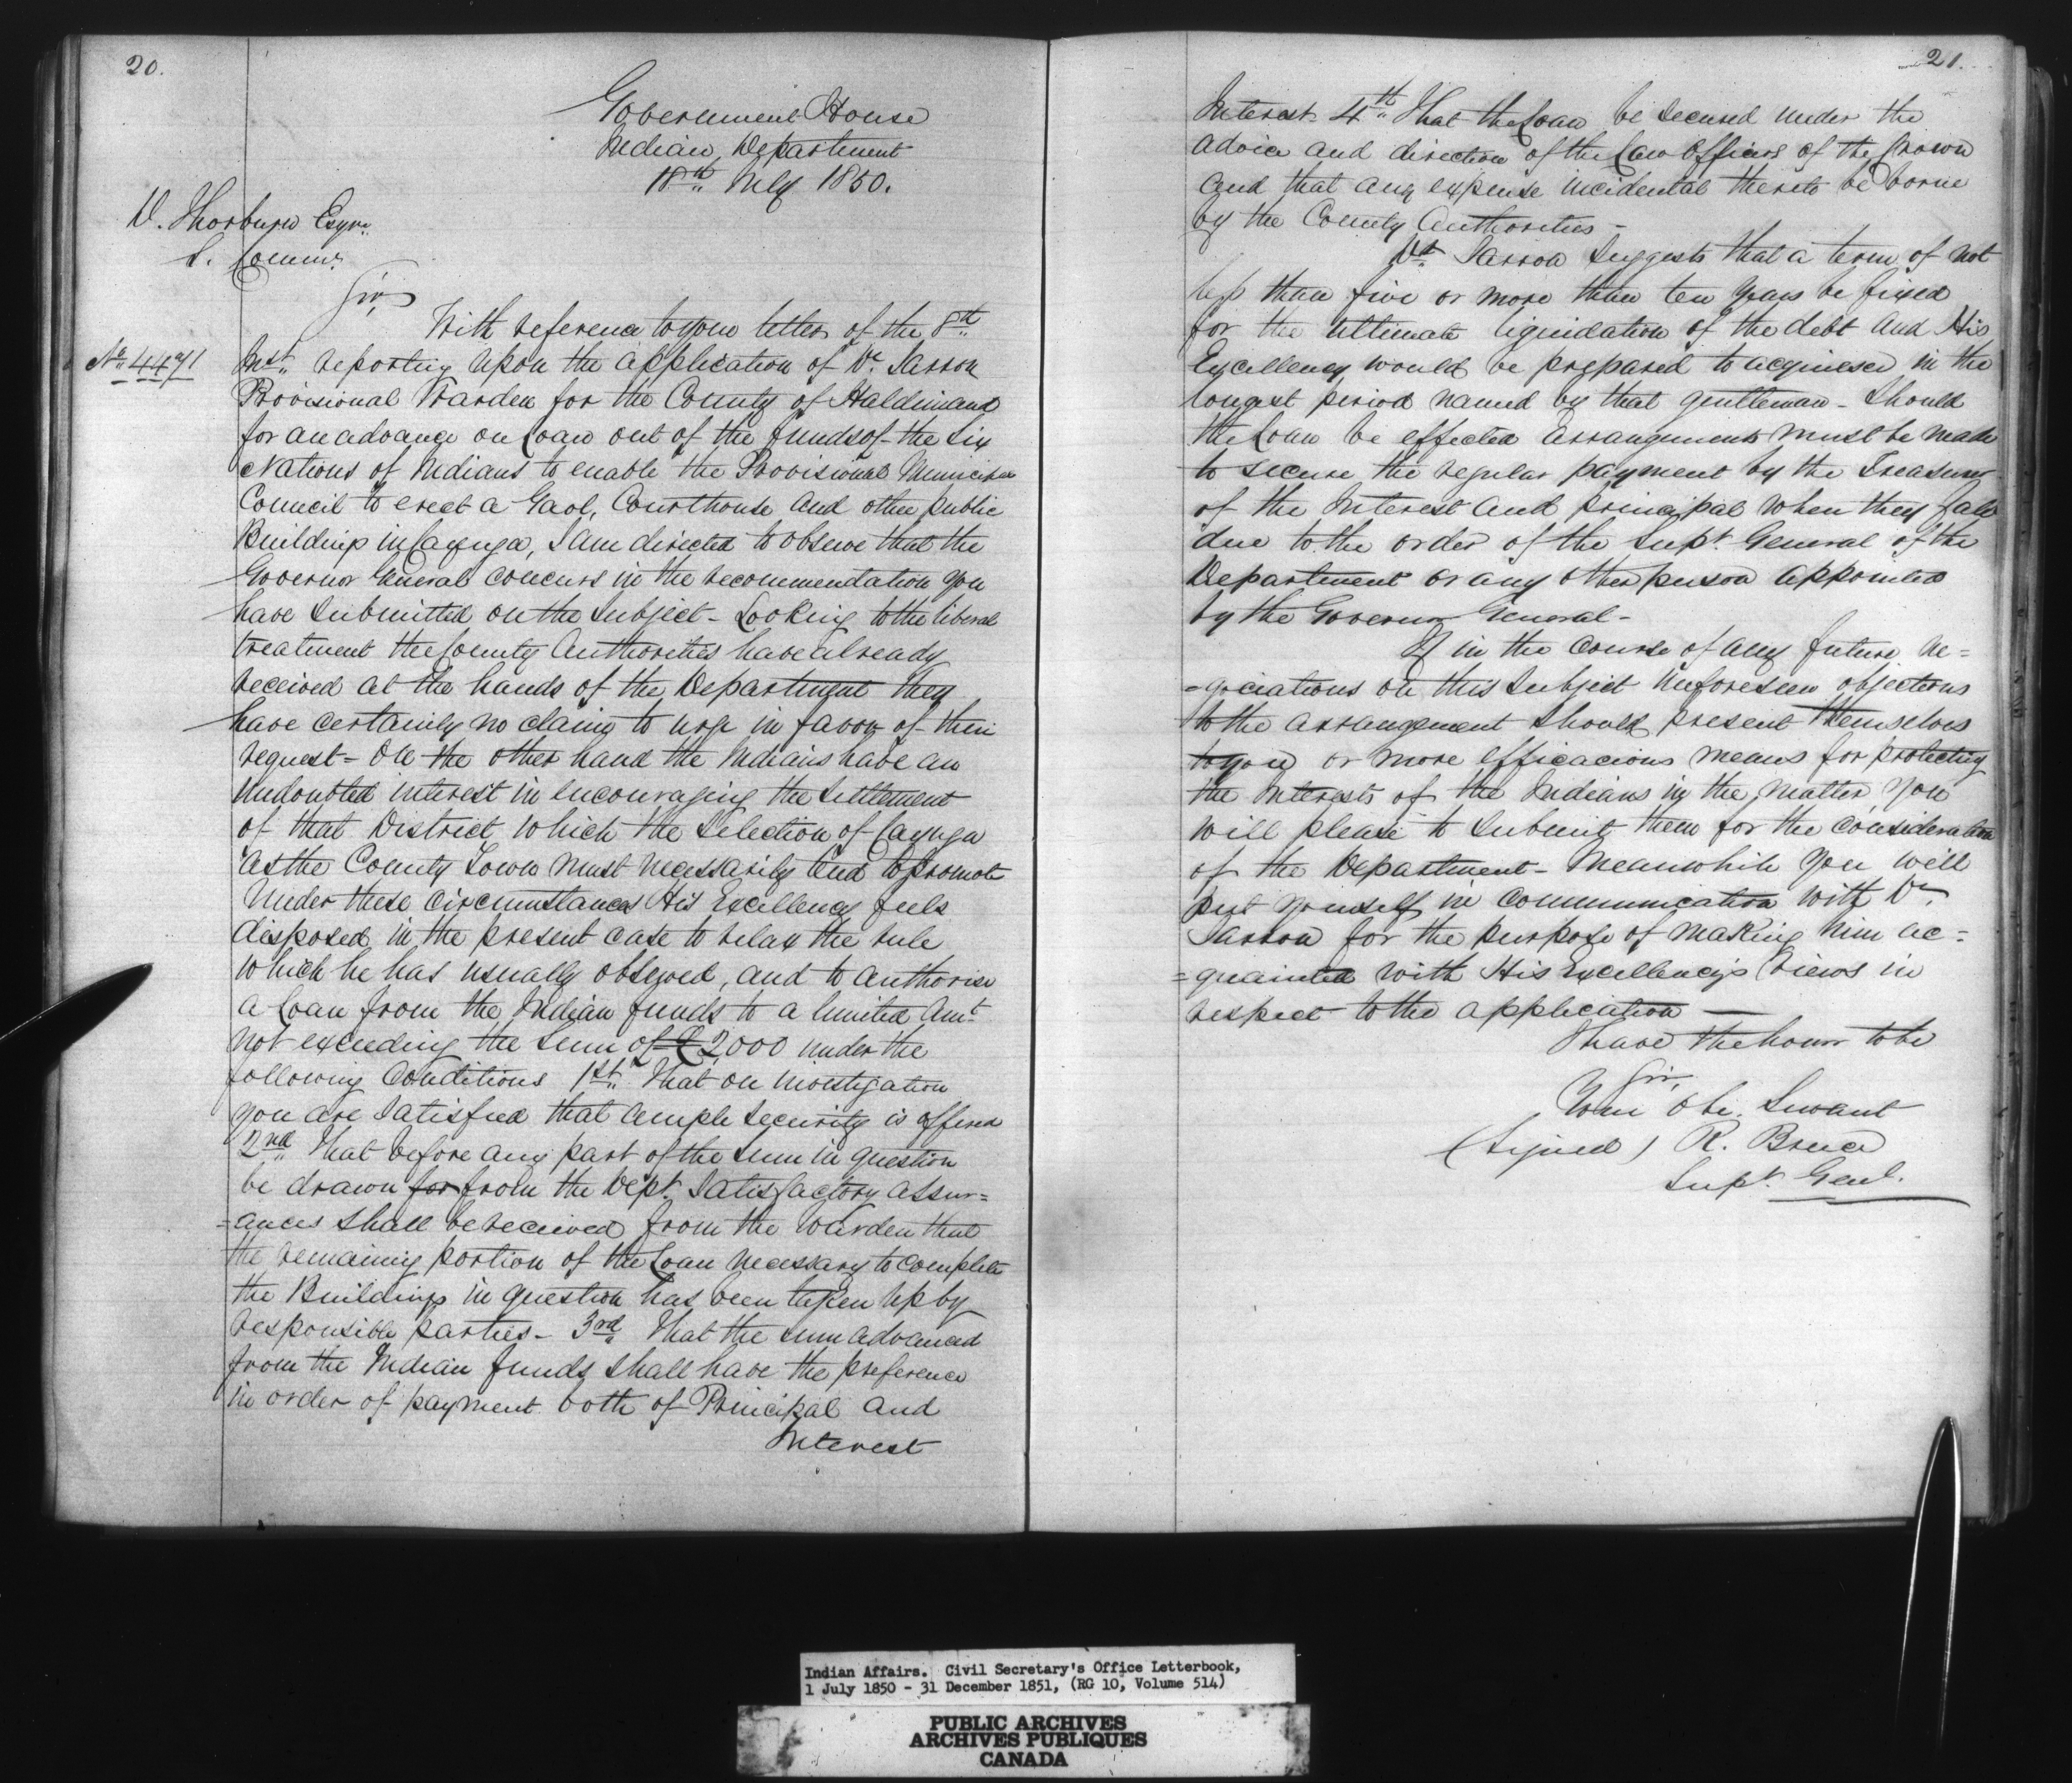 20.
Government House
Indian Department
18th July 1850.
D. Thorburn Esqre.
S. Commr.
Sir,
With reference to your letter of the 8th
No. 4471
Inst. reporting upon the application of Dr. Jarron
Provisional Warden for the County of Haldimand
for an advance on Loan out of the funds of the Six
Nations of Indians to enable the Provisional Municipal
Council to erect a Gaol, Courthouse and other public
Buildings in Cayuga, I am directed to observe that the
Governor General concurs in the recommendation you
have submitted on the subject - Looking to the liberal
treatment the County Authorities have already
received at the hands of the Department they
have certainly no claim to urge in favor of their
request - On the other hand the Indians have an
undoubted interest in encouraging the settlement
of that District which the selection of Cayuga
as the County Town must necessarily tend to promote
Under these circumstances His Excellency feels
disposed in the present case to relax the rule
which he has usually observed, and to authorise
a Loan from the Indian funds to a limited Amt.
not exceeding the sum of £2,000 under the
following Conditions 1st. That on investigation
you are satisfied that ample security is offered
2nd That before any part of the sum in question
be drawn for from the Dept. Satisfactory assur=
=ances shall be received from the Warden that
the remaining portion of the Loan necessary to complete
the Buildings in question has been taken up by
responsible parties - 3rd That the sum advanced
from the Indian funds shall have the preference
in order of payment both of Principal and
Interest
21.
Interest - 4th That the Loan be secured under the
advice and direction of the Law Officers of the Crown
and that any expense incidental thereto be borne
by the County Authorities -
Dr. Jarron suggests that a term of not
less than five or more than ten years be fixed
for the ultimate liquidation of the debt and His
Excellency would be prepared to acquiesce in the
longest period named by that gentleman - Should
the Loan be effected arrangements must be made
to secure the regular payment by the Treasurer
of the Interest and principal when they fall
due to the order of the Supt. General of the
Department or any other person appointed
by the Governor General -
If in the course of any future ne=
=gociations on this subject unforeseen objections
to the arrangement should present themselves
to you or more efficacious means for protecting
the Interests of the Indians in the matter, you
will please to submit them for the consideration
of the Department - Meanwhile you will
put yourself in communication with Dr.
Jarron for the purpose of making him ac=
=quainted with His Excellency's views in
respect to the application —
I have the honor to be
Sir,
Your obe. Servant
(signed) R. Bruce
Supt. Genl.
Indian Affairs. Civil Secretary's Office Letterbook,
1 July 1850 - 31 December 1851, (RG 10, Volume 514)
PUBLIC ARCHIVES
ARCHIVES PUBLIQUES
CANADA